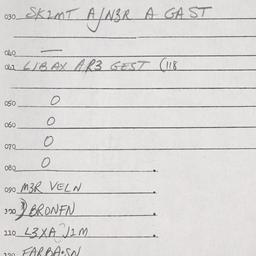 030 SK1MT A/N3R A GAST
040 —
042 L1BAX AR3 GEST (118
050 O
060 O
070 O
080 O
090 M3R VELN
100 BRONFN
110 L3XA J1M
120 FARBA·SN